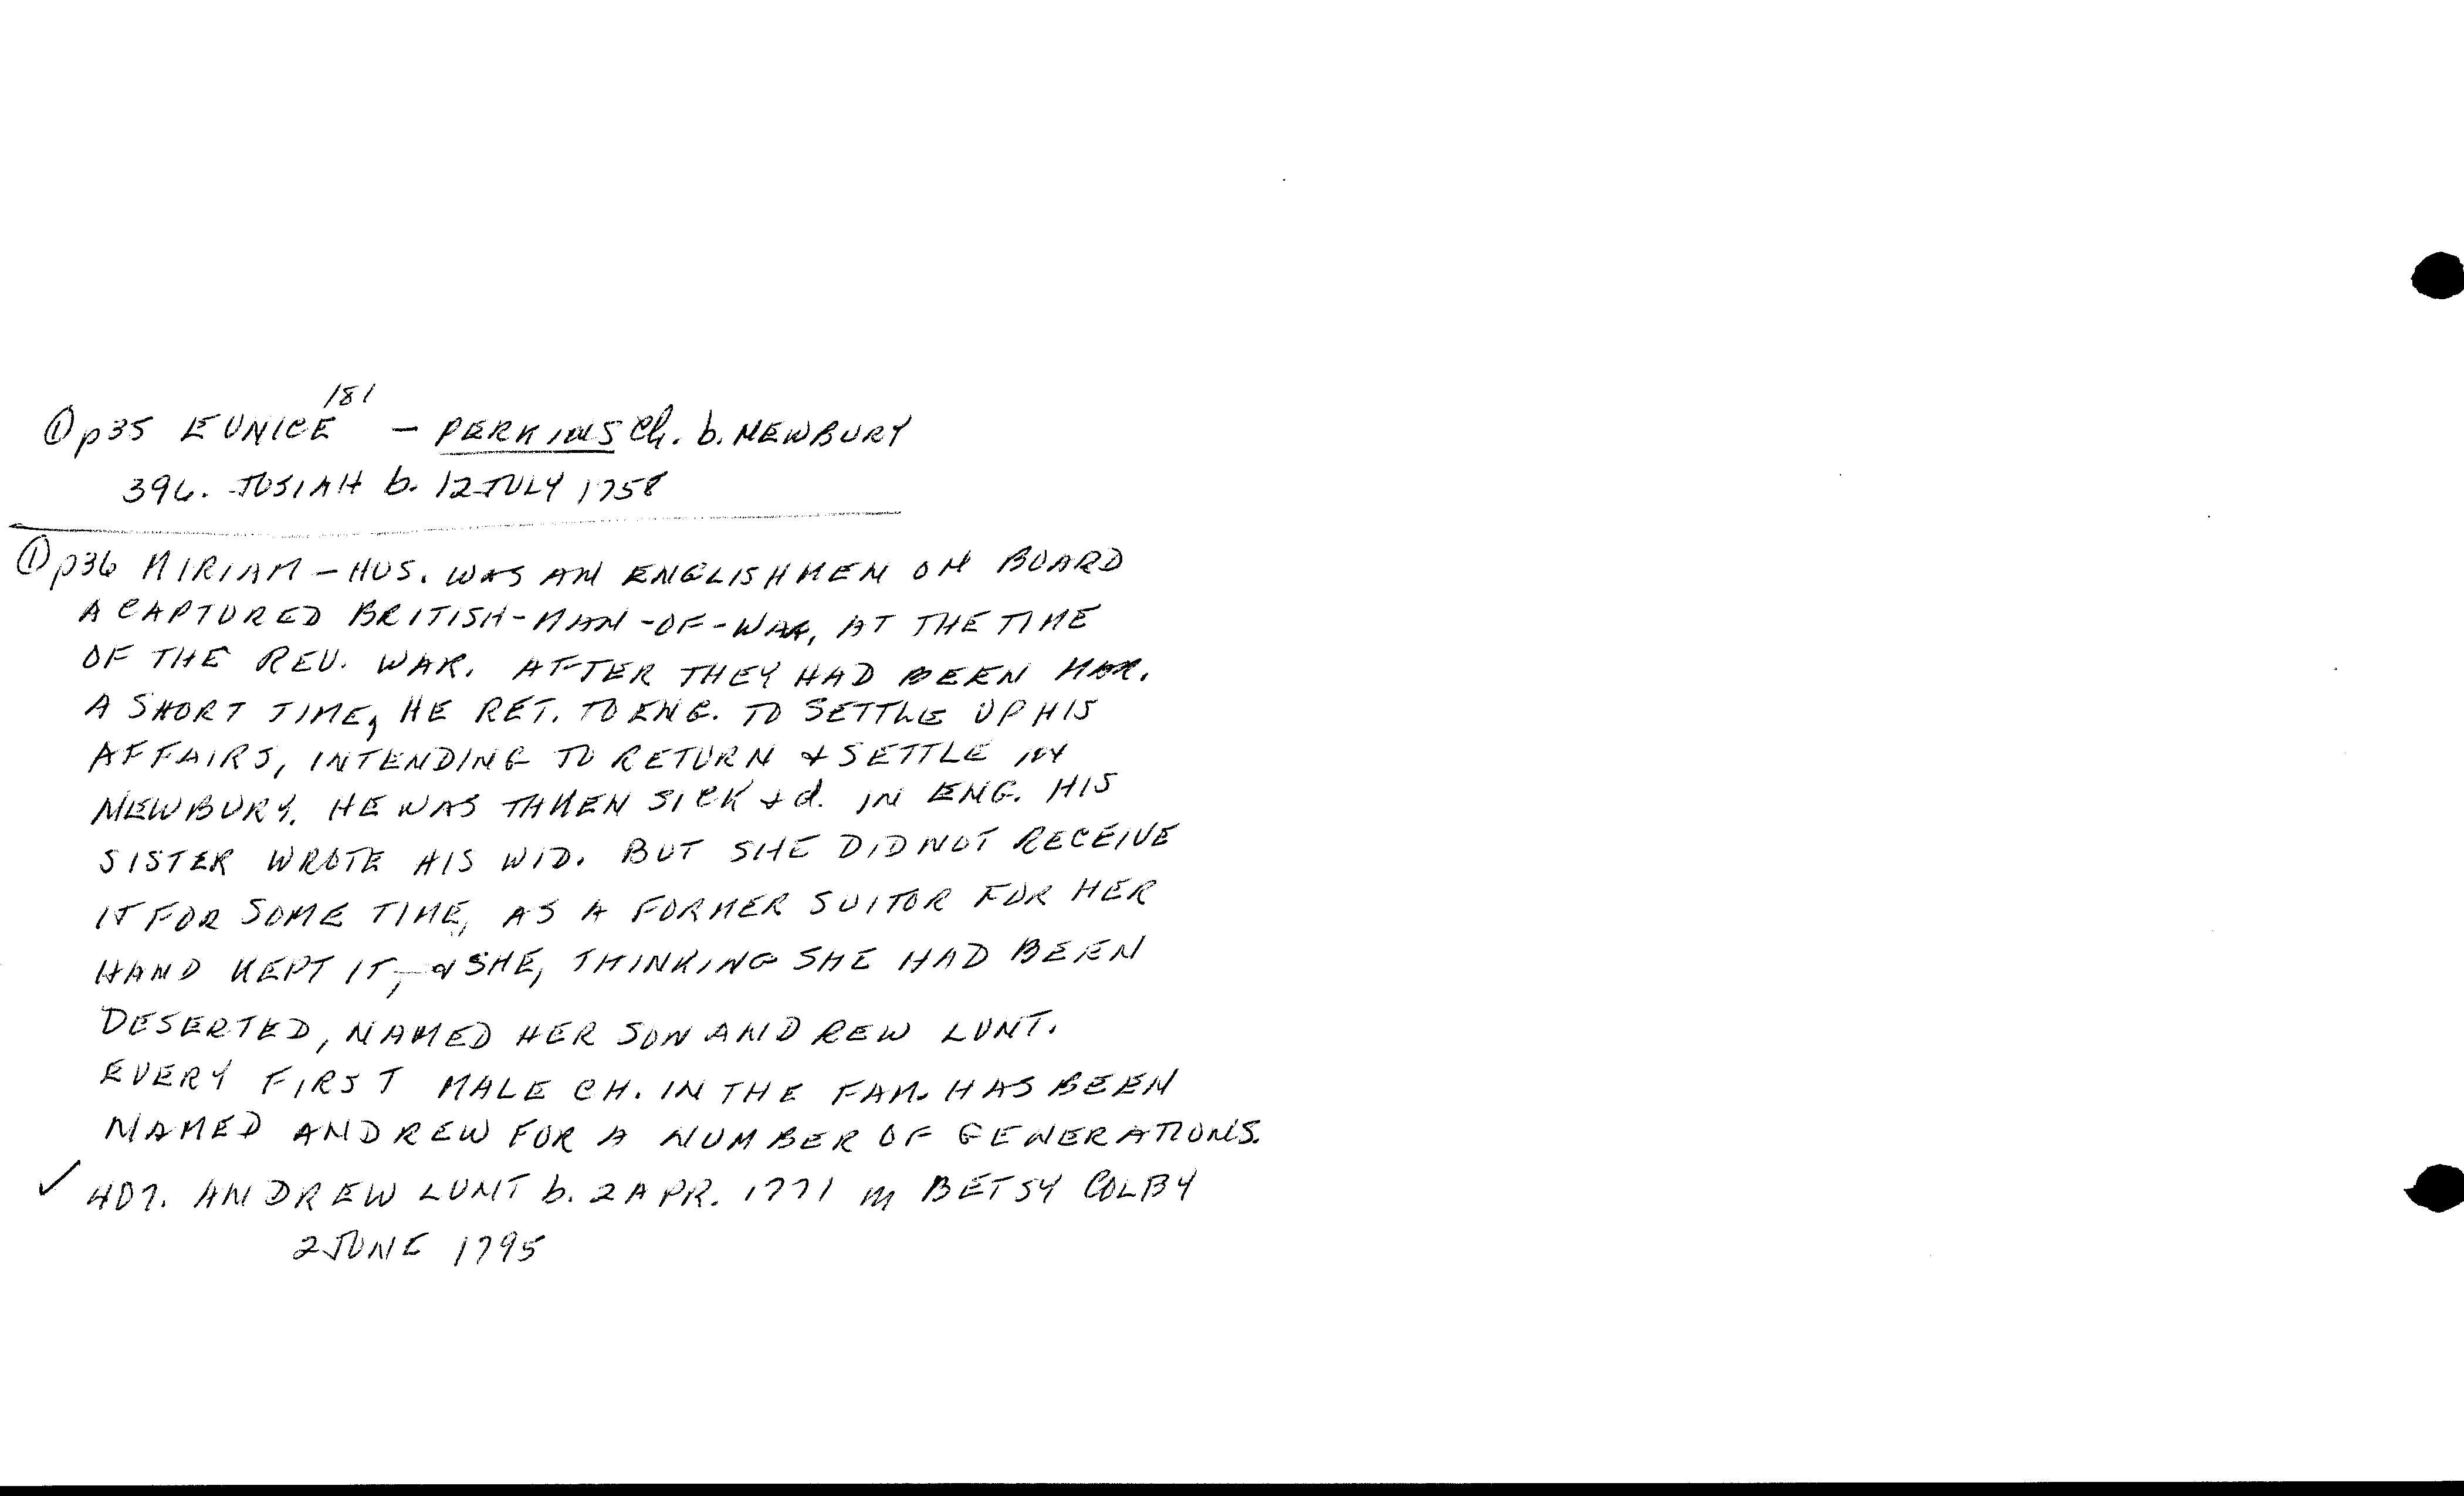 ① p35 EUNICE 181 - PERKINS Ch. b. NEWBURY
396. JOSIAH b. 12 JULY 1758
① p36 MIRIAM - HUS. WAS AN ENGLISHMEN ON BOARD
A CAPTURED BRITISH-MAN-OF-WAR, AT THE TIME
OF THE REV. WAR. AFTER THEY HAD BEEN MAR.
A SHORT TIME, HE RET. TO ENG. TO SETTLE UP HIS
AFFAIRS, INTENDING TO RETURN & SETTLE IN
NEWBURY. HE WAS TAKEN SICK & d. IN ENG. HIS
SISTER WROTE HIS WID. BUT SHE DID NOT RECEIVE
IT FOR SOME TIME, AS A FORMER SUITOR FOR HER
HAND KEPT IT, & SHE, THINKING SHE HAD BEEN
DESERTED, NAMED HER SON ANDREW LUNT.
EVERY FIRST MALE CH. IN THE FAM. HAS BEEN
NAMED ANDREW FOR A NUMBER OF GENERATIONS.
✓ 407. ANDREW LUNT b. 2 APR. 1771 m BETSY COLBY
2 JUNE 1795